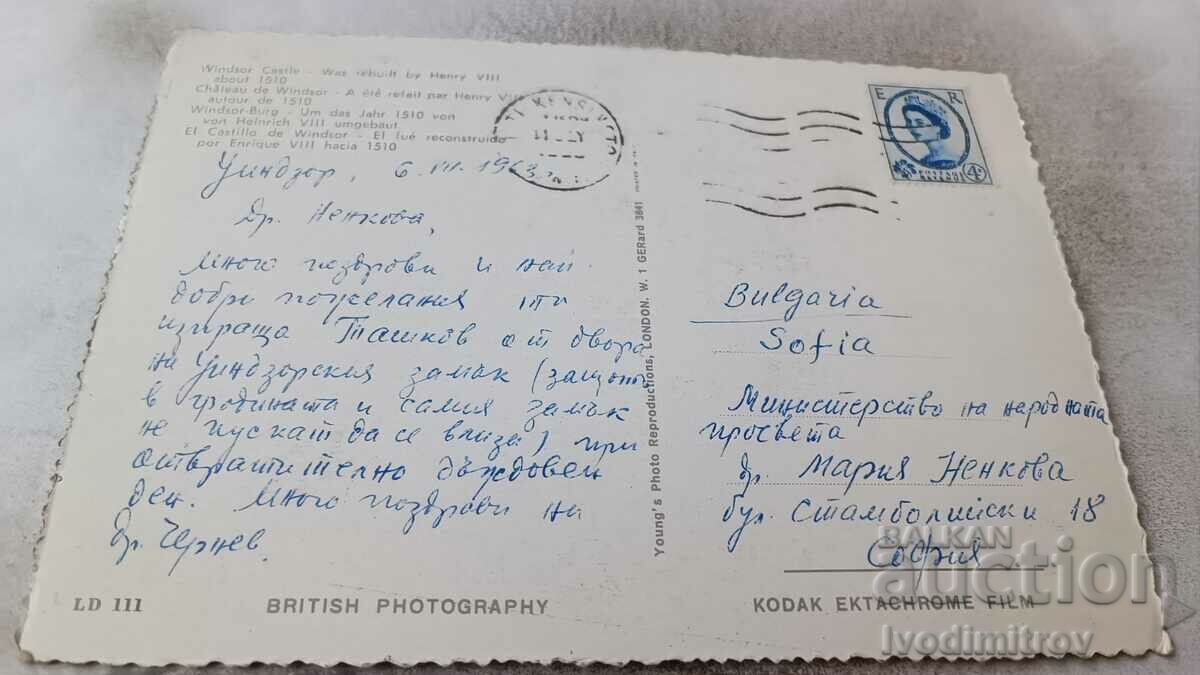 Windsor Castle - Was rebuilt by Henry VIII
about 1510
Château de Windsor - A été refait par Henry VIII
autour de 1510
Windsor-Burg - Um das Jahr 1510 von
von Heinrich VIII umgebaut
El Castillo de Windsor - El fué reconstruido
por Enrique VIII hacia 1510
Уиндзор, 6.VII.1963
Др. Ненкова,
Много поздрави и най-
добри пожелания ти
изпраща Ташков от двора
на Уиндзорския замък (защото
в градината и самия замък
не пускат да се влиза) при
отвратително дъждовен
ден. Много поздрави на
Др. Чернев.
LD 111
BRITISH PHOTOGRAPHY
Young's Photo Reproductions, LONDON. W. 1 GERard 3641
KENSINGTO
E R
POSTAGE REVENUE
4D
Bulgaria
Sofia
Министерство на народната
просвета
др. Мария Ненкова
бул. Стамболийски 18
София
KODAK EKTACHROME FILM
BALKAN
auction
Ivodimitrov